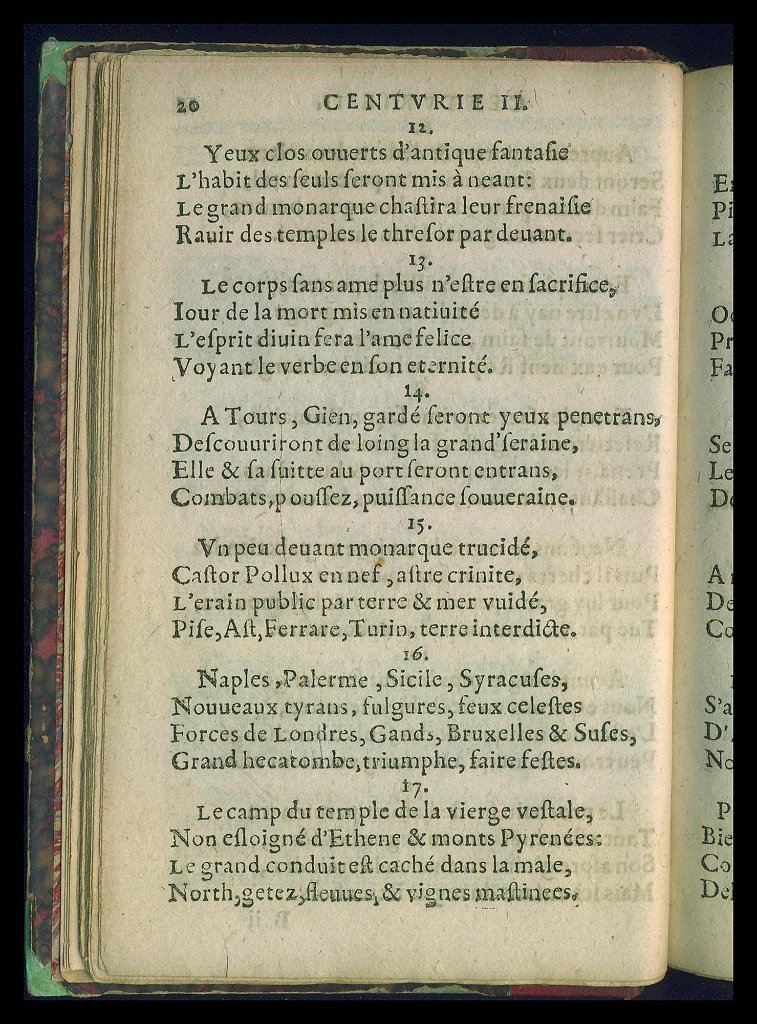 20 CENTVRIE II.
12.
Yeux clos ouuerts d'antique fantaſie
L'habit des ſeuls ſeront mis à neant:
Le grand monarque chaſtira leur frenaiſie
Rauir des temples le threſor par deuant.
13.
Le corps ſans ame plus n'eſtre en ſacrifice,
Iour de la mort mis en natiuité
L'eſprit diuin fera l'ame felice
Voyant le verbe en ſon eternité.
14.
A Tours, Gien, gardé ſeront yeux penetrans,
Deſcouuriront de loing la grand'ſeraine,
Elle & ſa ſuitte au port ſeront entrans,
Combats, pouſſez, puiſſance ſouueraine.
15.
Vn peu deuant monarque trucidé,
Caſtor Pollux en nef, aſtre crinite,
L'erain public par terre & mer vuidé,
Piſe, Aſt, Ferrare, Turin, terre interdicte.
16.
Naples, Palerme, Sicile, Syracuſes,
Nouueaux tyrans, fulgures, feux celeſtes
Forces de Londres, Gands, Bruxelles & Suſes,
Grand hecatombe, triumphe, faire feſtes.
17.
Le camp du temple de la vierge veſtale,
Non eſloigné d'Ethene & monts Pyrenées:
Le grand conduit eſt caché dans la male,
North, getez, fleuues, & vignes maſtinees.
Pi
La
Pr
Fa
Se
Le
De
A
De
Co
S'a
D'
No
P
Bie
Co